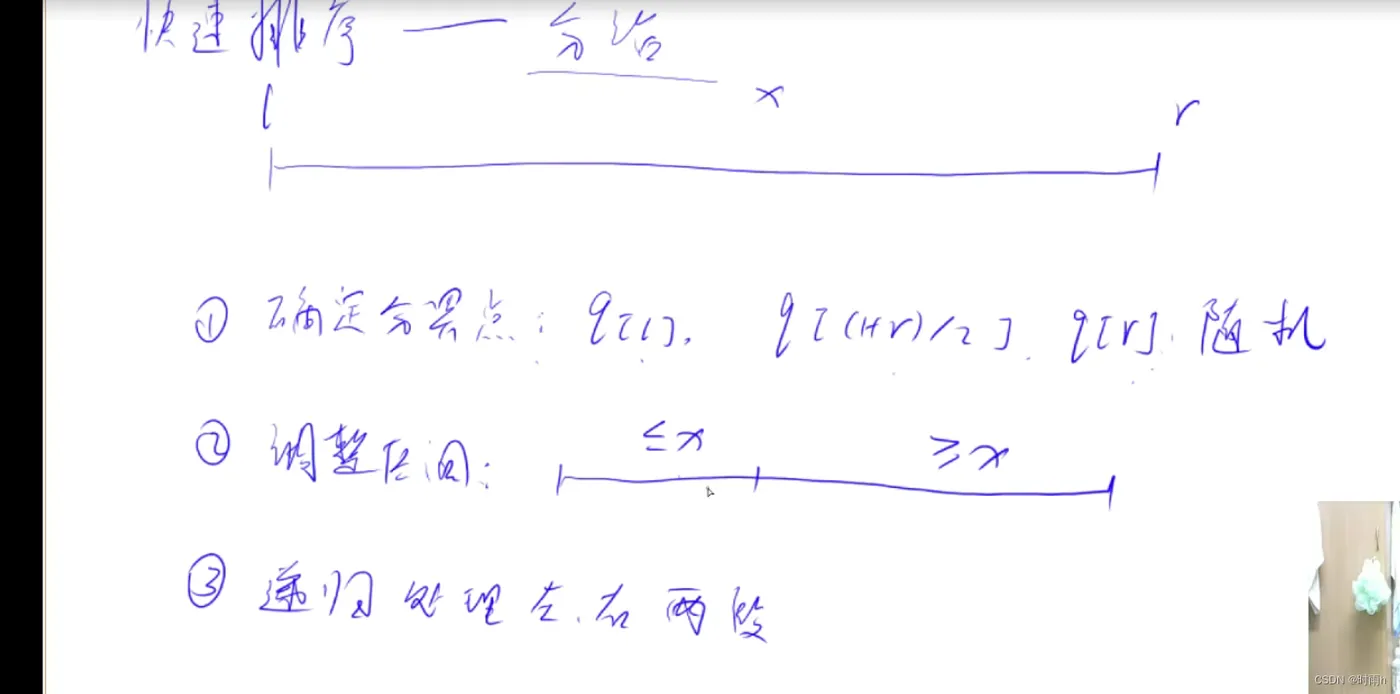 快速排序 —— 分治
l x r
① 确定分界点: q[l], q[(l+r)/2], q[r], 随机
② 调整区间: ≤x ≥x
③ 递归处理左、右两段
CSDN @时雨h